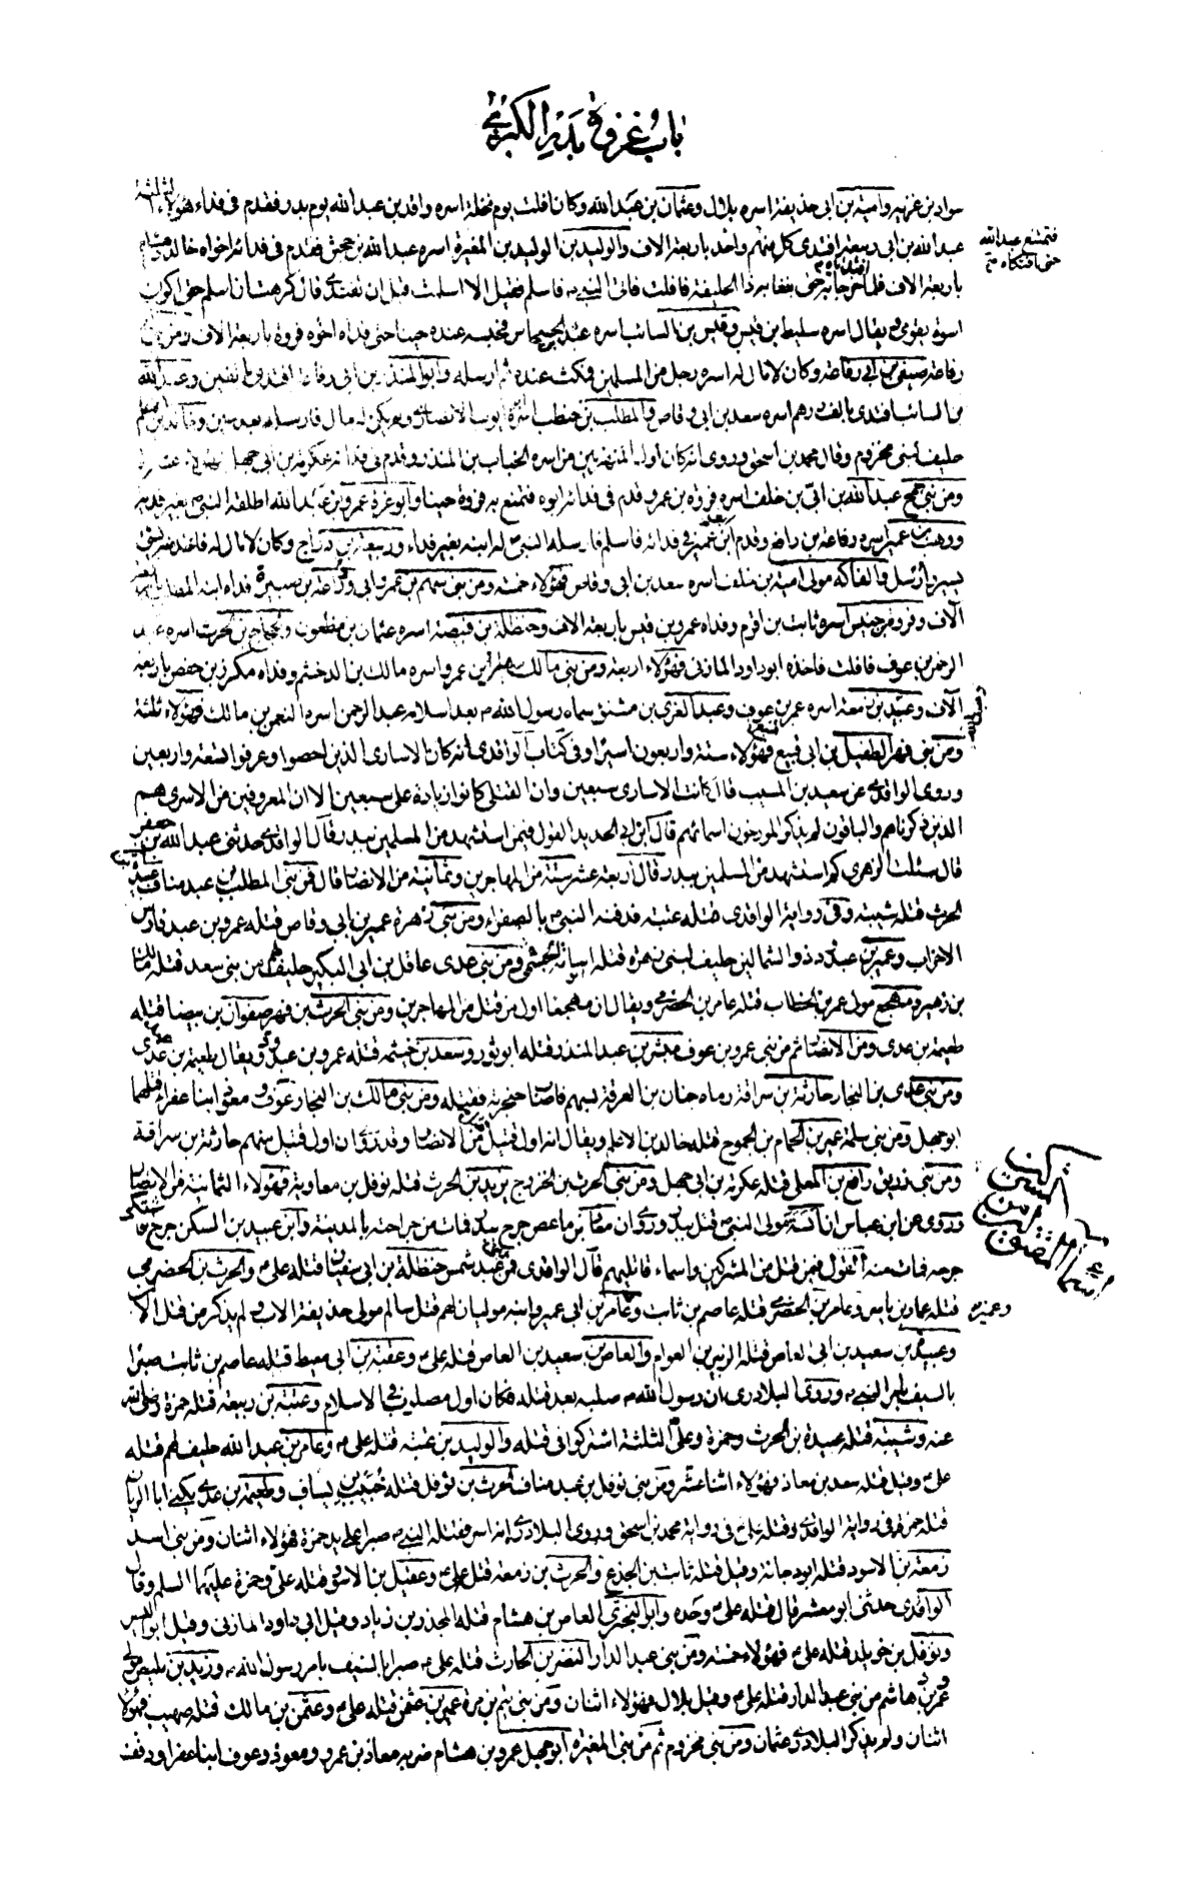 باب غزوة بدر الكبرى
سواد بن غزيه وامية بن ابى حذيفة اسره بلال وعثمان بن عبد الله وكان افلت يوم نخلة اسره واقد بن عبد الله يوم بدر فقدم فى فداء هؤلاء الثلثة
عبد الله بن ابى ربيعة افتدى كل منهم واحد باربعة الاف والوليد بن الوليد بن المغيرة اسره عبد الله بن جحش فقدم فى فدائه اخواه خالد وهشام
فتمنع عبد الله حتى افتكاه
باربعة الاف فلما خرجا به حتى بلغا به ذا الحليفة فافلت فاتى النبى فاسلم فقيل الا اسلمت قبل ان تفتدى قال كرهت ان اسلم حتى اكون
اسوة بقومى ويقال اسره سليط بن قيس وقيس بن السائب اسره عبد الحسحاس فحبسه عنده حينا حتى فداه اخوه فروة باربعة الاف ومن بنى
رفاعة صيفى بن ابى رفاعة وكان لا مال له اسره رجل من المسلمين فمكث عنده ثم ارسله وابو المنذر بن ابى رفاعة افتدى بالفين وعبد الله
بن السائب افتدى بالف درهم اسره سعد بن ابى وقاص والمطلب بن حنطب اسره ابو ايوب الانصارى ولم يكن له مال فارسله بعد حين وخالد بن الاعلم
حليف لبنى مخزوم وقال محمد بن اسحق وروى انه كان اول المنهزمين اسره الخباب بن المنذر وقدم فى فدائه عكرمة بن ابى جهل فهؤلاء عشرة
ومن بنى جمح عبد الله بن ابى بن خلف اسره فروة بن عمرو قدم فى فدائه ابوه فتمنع به فروة حينا وابو عزة عمرو بن عبد الله اطلقه النبى بغير فدية
ووهب بن عمير اسره رفاعة بن رافع وقدم ابوه عمير فى فدائه فاسلم فارسله النبى له ابنه بغير فداء وربيعة بن دراج وكان لا مال له فاخذ منه بشئ
يسير وارسل والفاكه مولى امية بن خلف اسره سعد بن ابى وقاص فهؤلاء خمسة ومن بنى سهم بن عمرو ابى وداعة بن صبيرة فداه ابنه المطلب باربعة
آلاف وفروة بن خنيس اسره ثابت بن اقرم وفداه عمرو بن قيس باربعة الاف وحنظلة بن قبيصة اسره عثمان بن مظعون والحجاج بن الحرث اسره عبد
الرحمن بن عوف فافلت فاخذه ابو داود المازنى فهؤلاء اربعة ومن بنى مالك سهيل بن عمرو اسره مالك بن الدخشم وفداه مكرز بن حفص باربعة
الآف وعبد بن زمعة اسره عمير بن عوف وعبد العزى بن مشنق سماه رسول الله بعد اسلامه عبد الرحمن اسره النعمن بن مالك فهؤلاء ثلثة
ومن بنى فهر الطفيل بن ابى قنيع فهؤلاء ستة واربعون اسيرا وفى كتاب الواقدى انه كان الاسارى الذين احصوا وعرفوا تسعة واربعين
وروى الواقدى عن سعيد بن المسيب قال كانت الاسارى سبعين وان القتلى كانوا زيادة على سبعين الا ان المعروفين من الاسرى هم
الذين ذكرناهم والباقون لم يذكر المورخون اسمائهم قال ابن ابى الحديد القول فيمن استشهد من المسلمين ببدر قال الواقدى حدثنى عبد الله بن جعفر
قال سئلت الزهرى كم استشهد من المسلمين ببدر قال اربعة عشر ستة من المهاجرين وثمانية من الانصار قال فمن بنى المطلب بن عبد مناف عبيدة بن
الحرث قتله شيبة وفى رواية الواقدى قتله عتبة فدفنه النبى بالصفراء ومن بنى زهرة عمير بن ابى وقاص قتله عمرو بن عبد فارس
الاحزاب وعمير بن عبد ود ذو الشمالين حليف لبنى زهرة قتله ابو اسامة الجشمى ومن بنى عدى عاقل بن ابى البكير حليف لهم من بنى سعد قتله مالك
بن زهير ومهجع مولى عمر بن الخطاب قتله عامر بن الحضرمى ويقال ان مهجعا اول من قتل من المهاجرين ومن بنى الحرث بن فهر صفوان بن بيضا قتله
طعيمة بن عدى ومن الانصار ثم من بنى عمرو بن عوف مبشر بن عبد المنذر قتله ابو ثور وسعد بن خيثمة قتله عمرو بن عبد ود ويقال طعيمة بن عدى
ومن بنى عدى بن النجار حارثة بن سراقة رماه حنان بن العرقة بسهم فاصاب حنجرته فقتله ومن بنى مالك بن النجار عوف ومعوذ ابنا عفراء قتلهما
ابو جهل ومن بنى سلمة عمير بن الحمام بن الجموح قتله خالد بن الاعلم ويقال انه اول قتيل من الانصار وقد روى ان اول قتيل منهم حارثة بن سراقة
ومن بنى زريق رافع بن المعلى قتله عكرمة بن ابى جهل ومن بنى الحرث بن الخزرج يزيد بن الحرث قتله نوفل بن معاوية فهؤلاء الثمانية من الانصار
وروى عن ابن عباس ان انسة مولى النبى قتل ببدر وروى ان معاذ بن ماعص جرح ببدر فمات من جراحته بالمدينة وابن عبيد بن السكن جرح فاشتكى
جرحه فمات منه القول فيمن قتل من المشركين واسماء قاتليهم قال الواقدى فمن بنى عبد شمس حنظلة بن ابى سفيان قتله على والحرث بن الحضرمى
اسماء المقتولين من المشركين
قتله عمار بن ياسر وعامر بن الحضرمى قتله عاصم بن ثابت وعمير بن ابى عمير وابنه موليان لهم قتل سالم مولى حذيفة الاب ولم يذكر من قتل الابن
وعبيدة بن سعيد بن ابى العاص قتله الزبير بن العوام والعاص بن سعيد بن العاص قتله على وعقبة بن ابى معيط قتله عاصم بن ثابت صبرا
بالسيف بامر النبى وروى البلاذرى ان رسول الله صلبه بعد قتله فكان اول مصلوب فى الاسلام وعتبة بن ربيعة قتله حمزة رضى الله
عنه وشيبة قتله عبيدة بن الحرث وحمزة وعلى الثلثة اشتركوا فى قتله والوليد بن عتبة قتله على وعامر بن عبد الله حليف لهم قتله
على وقيل قتله سعد بن معاذ فهؤلاء اثنا عشر ومن بنى نوفل بن عبد مناف الحرث بن نوفل قتله خبيب بن يساف وطعيمة بن عدى يكنى ابا الريان
قتله حمزة فى رواية الواقدى وقتله على فى رواية محمد بن اسحق وروى البلاذرى انه اسر فقتله النبى صبرا على يد حمزة فهؤلاء اثنان ومن بنى اسد
زمعة بن الاسود قتله ابو دجانة وقيل قتله ثابت بن الجذع والحرث بن زمعة قتله على وعقيل بن الاسود قتله على وحمزة عليهما السلم وقال
الواقدى حدثنى ابو معشر قال قتله على وحده وابو البخترى العاص بن هشام قتله المجذر بن زياد وقيل ابى داود المازنى وقيل ابو اليسر
ونوفل بن خويلد قتله على فهؤلاء خمسة ومن بنى عبد الدار النضر بن الحارث قتله على صبرا بالسيف بامر رسول الله وزيد بن مليص مولى
عمرو بن هاشم من بنى عبد الدار قتله على وقيل بلال فهؤلاء اثنان ومن بنى تيم بن مرة عمير بن عثمن قتله على وعثمن بن مالك قتله صهيب فهؤلاء
اثنان ولم يذكر البلاذرى عثمان ومن بنى مخزوم ثم من بنى المغيرة ابو جهل عمرو بن هشام ضربه معاذ بن عمرو ومعوذ وعوف ابنا عفرا ودفف